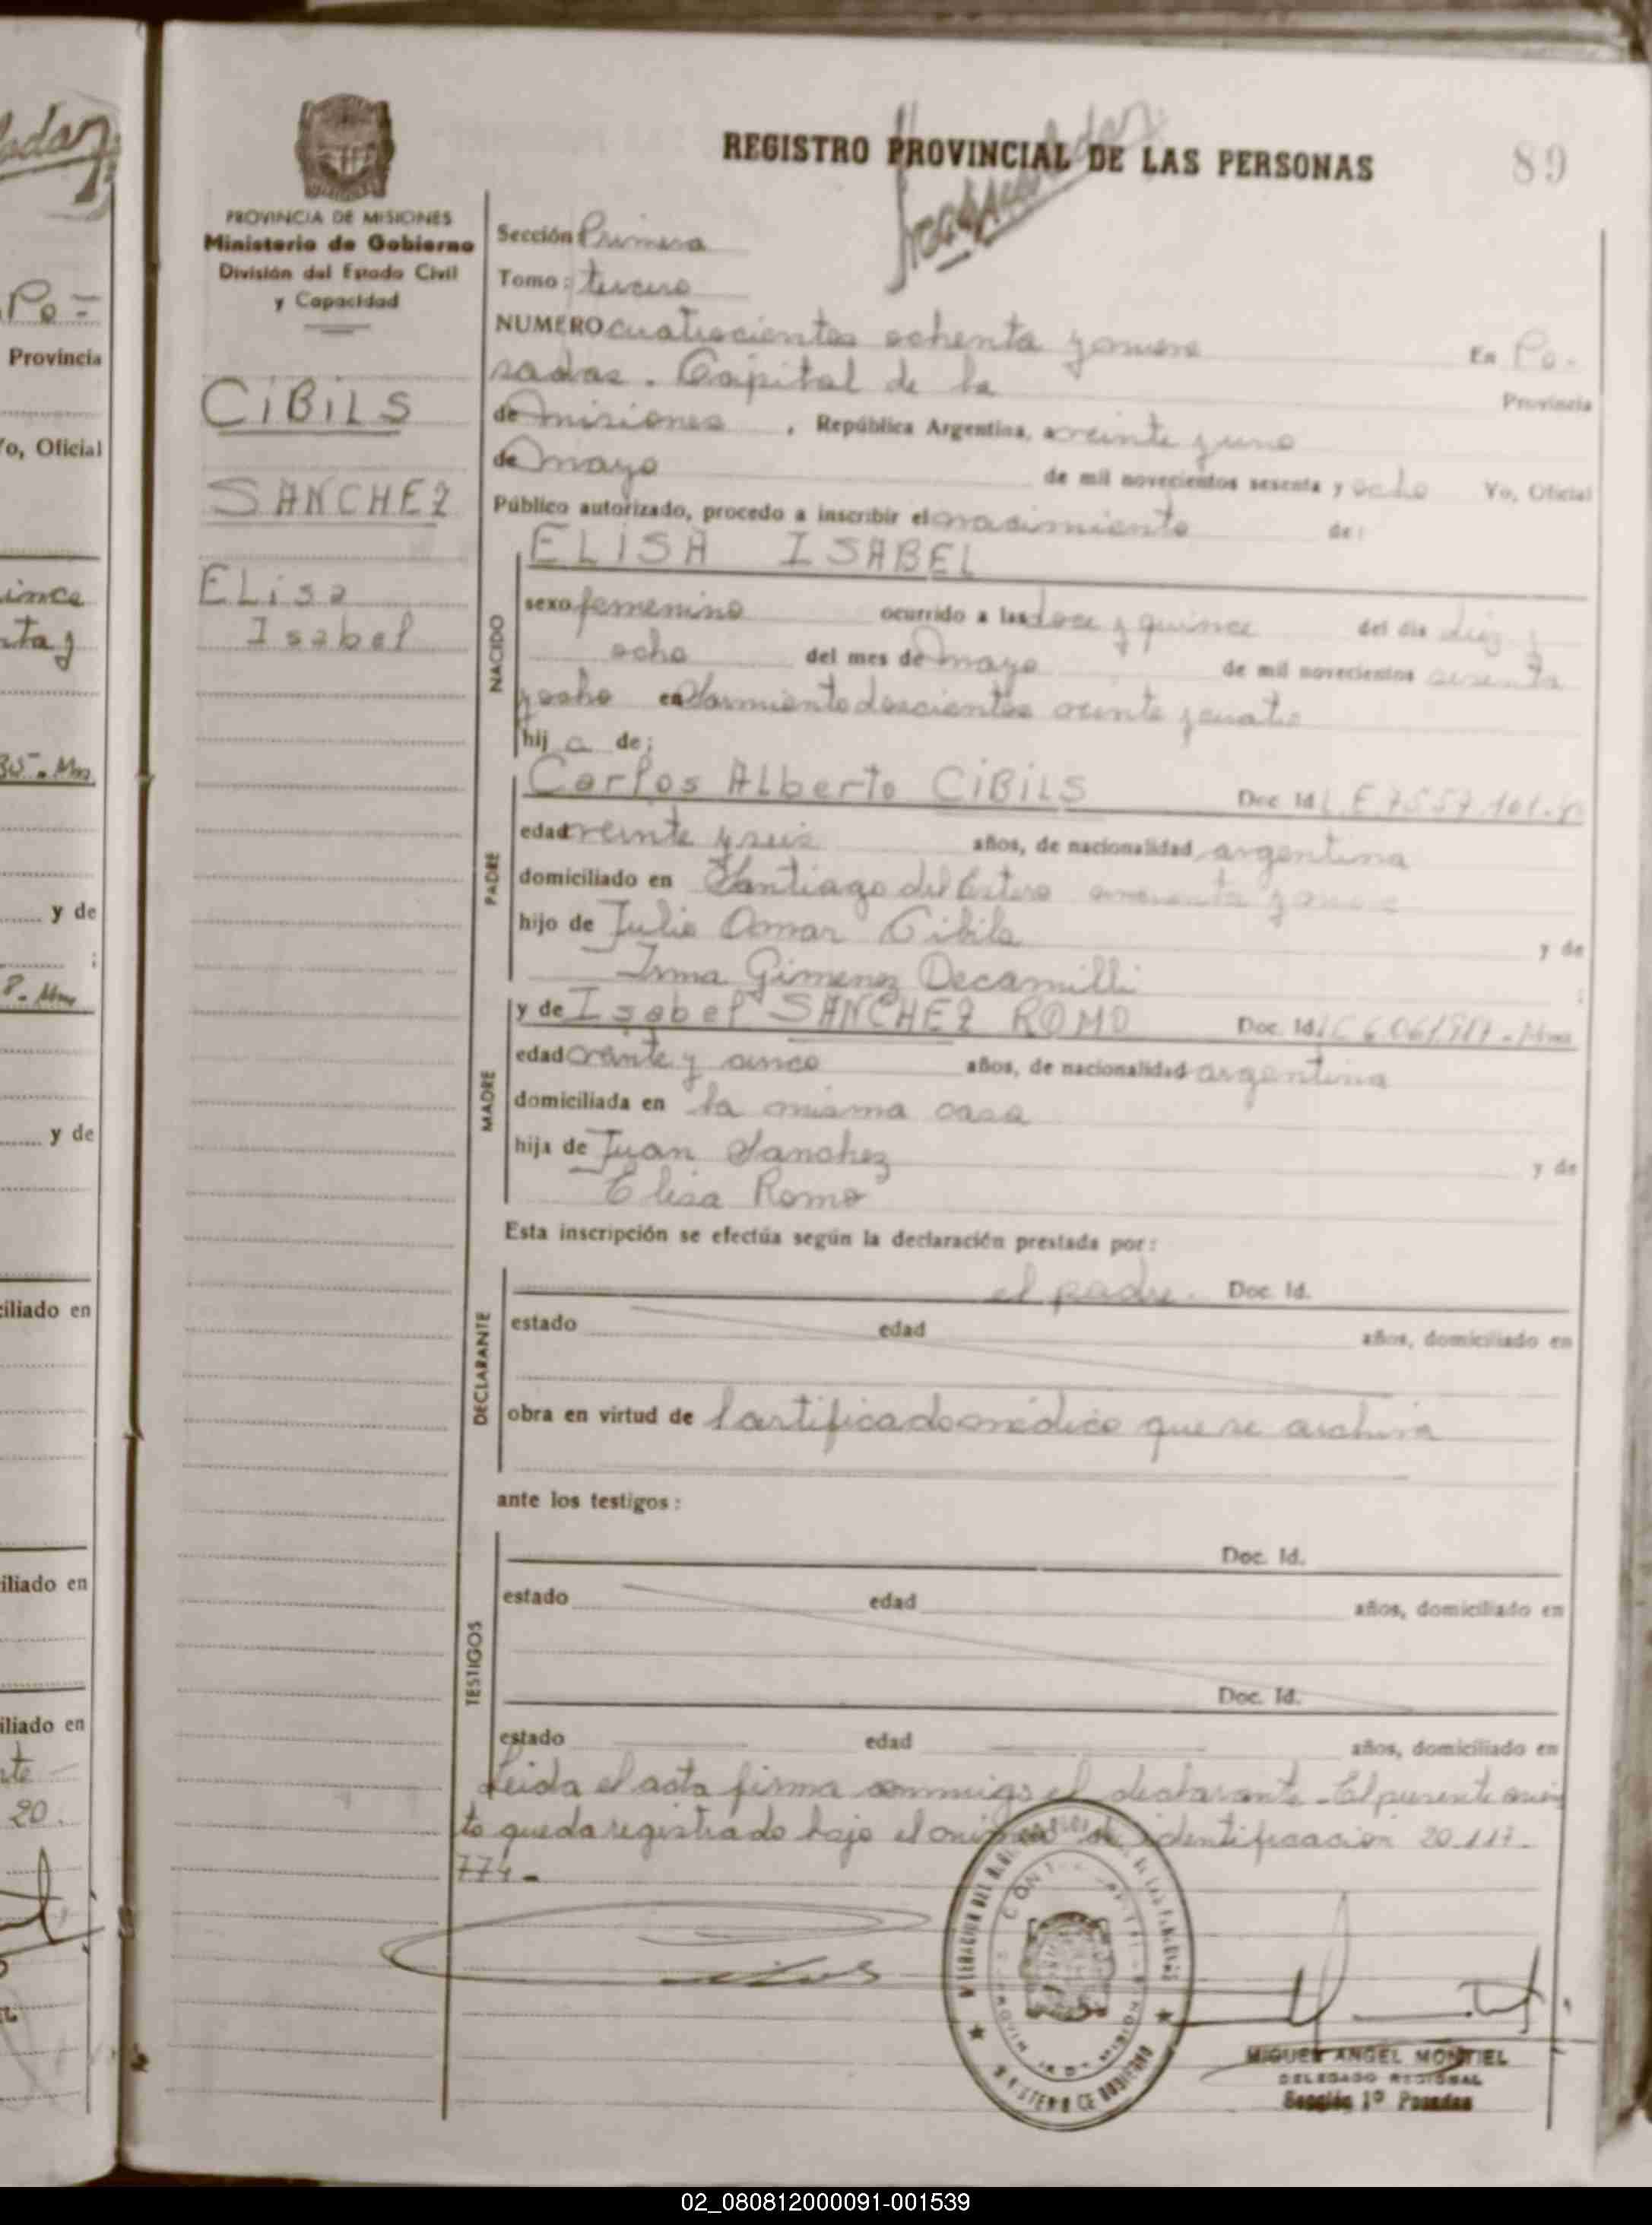 REGISTRO PROVINCIAL DE LAS PERSONAS
89
PROVINCIA DE MISIONES
Ministerio de Gobierno
División del Estado Civil
y Capacidad
CiBiLS
SANCHEZ
ELisa
Isabel
Sección Primera
Tomo: tercero
NUMERO cuatrocientos ochenta y nueve En Po-
sadas. Capital de la Provincia
de misiones, República Argentina, a veinte y uno
de mayo de mil novecientos sesenta y ocho Yo, Oficial
Público autorizado, procedo a inscribir el nacimiento de:
ELISA ISABEL
NACIDO
sexo femenino ocurrido a las doce y quince del dia diez y
ocho del mes de mayo de mil novecientos sesenta
y ocho en Sarmiento doscientos veinte y cuatro
hij a de;
PADRE
Carlos Alberto CiBiLS Doc. Id L.E 7557.101.
edad veinte y seis años, de nacionalidad argentina
domiciliado en Santiago del Estero
hijo de Julio Omar Cibils y de
Irma Gimenez Decamilli ;
MADRE
y de Isabel SANCHEZ ROMO Doc. Id
edad veinte y cinco años, de nacionalidad argentina
domiciliada en la misma casa
hija de Juan Sanchez y de
Elisa Romo
Esta inscripción se efectúa según la declaración prestada por:
DECLARANTE
el padre. Doc. Id.
estado edad años, domiciliado en
obra en virtud de Certificado médico que se archiva
ante los testigos:
TESTIGOS
Doc. Id.
estado edad años, domiciliado en
Doc. Id.
estado edad años, domiciliado en
Leida el acta firma conmigo el declarante. El presente asien
to queda registrado bajo el número de identificación 20.117.
774-
MIGUEL ANGEL MONTIEL
DELEGADO REGIONAL
Sección 1º Posadas
Provincia
Yo, Oficial
y de
y de
ciliado en
iliado en
iliado en
20.
02_080812000091-001539